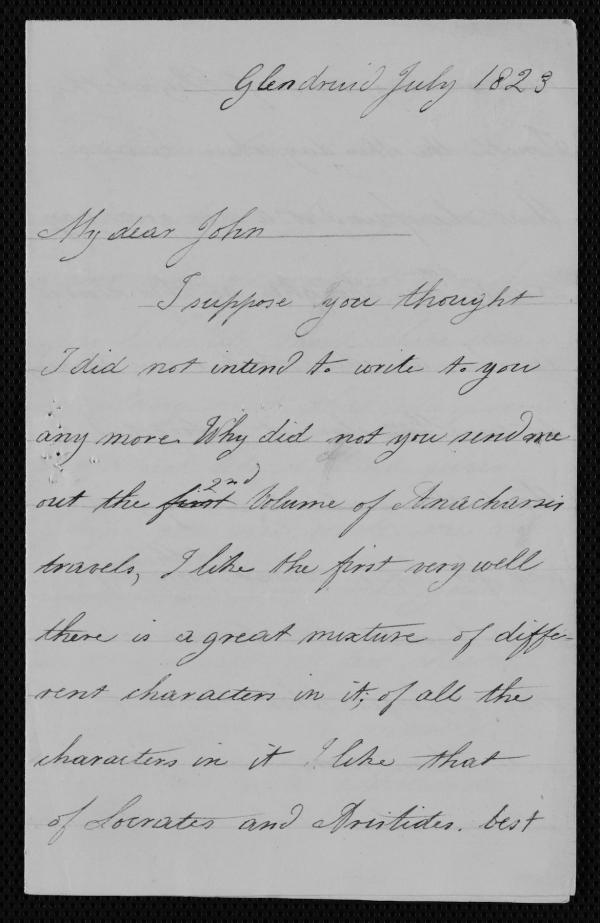 Glendruid July 1823
My dear John
I suppose you thought
I did not intend to write to you
any more. Why did not you send me
2nd
out the first Volume of Anacharsis
travels, I like the first very well
there is a great mixture of diffe-
rent characters in it; of all the
characters in it I like that
of Socrates and Aristides. best